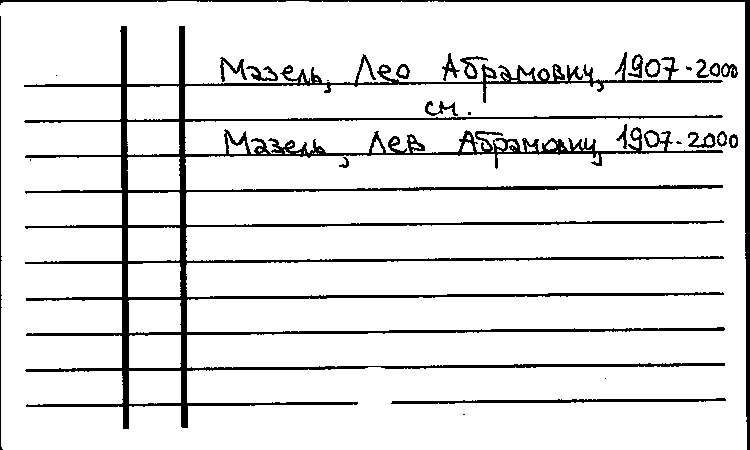 Мазель, Лео Абрамович, 1907-2000
см.
Мазель, Лев Абрамович, 1907-2000